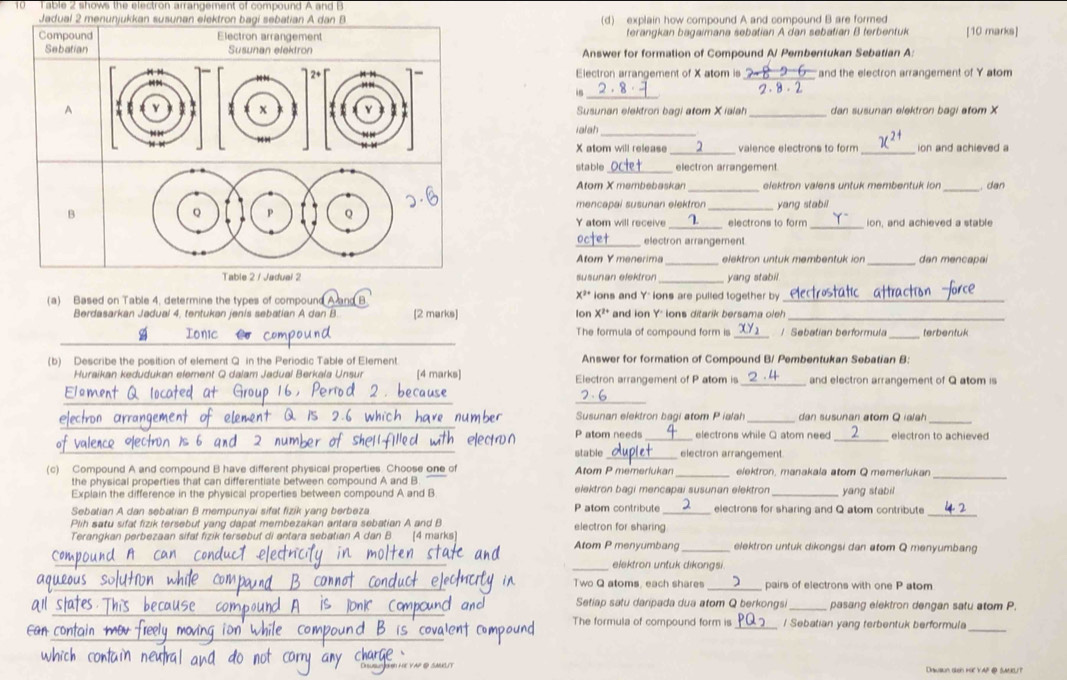 10 Table 2 shows the electron arrangement of compound A and B
Jadual 2 menunjukkan susunan elektron bagi sebatian A dan B
Compound
Sebatian
Electron arrangement
Susunan elektron
A
Y
–
X
2+
Y
–
B
Q
P
Q
2.6
Table 2 / Jadual 2
(a) Based on Table 4, determine the types of compound A and B
Berdasarkan Jadual 4, tentukan jenis sebatian A dan B. [2 marks]
Ionic compound
(b) Describe the position of element Q in the Periodic Table of Element
Huraikan kedudukan element Q dalam Jadual Berkala Unsur [4 marks]
Element Q located at Group 16, Period 2. because
electron arrangement of element Q is 2.6 which have number
of valence electron is 6 and 2 number of shell filled with electron
(c) Compound A and compound B have different physical properties. Choose one of
the physical properties that can differentiate between compound A and B
Explain the difference in the physical properties between compound A and B
Sebatian A dan sebatian B mempunyai sifat fizik yang berbeza
Plih satu sifat fizik tersebut yang dapat membezakan antara sebatian A and B
Terangkan perbezaan sifat fizik tersebut di antara sebatian A dan B [4 marks]
compound A can conduct electricity in molten state and
aqueous solution while compound B cannot conduct electricity in
all states. This because compound A is ionic compound and
can contain freely moving ion while compound B is covalent compound
which contain neutral and do not carry any charge.
(d) explain how compound A and compound B are formed
terangkan bagaimana sebatian A dan sebatian B terbentuk [10 marks]
Answer for formation of Compound A/ Pembentukan Sebatian A:
Electron arrangement of X atom is 2.8.2 and the electron arrangement of Y atom
is 2.8.7
Susunan elektron bagi atom X ialah ______ dan susunan elektron bagi atom X
ialah ______
X atom will release 2 valence electrons to form X2+ ion and achieved a
stable octet electron arrangement.
Atom X membebaskan ______ elektron valens untuk membentuk ion ______, dan
mencapai susunan elektron ______ yang stabil
Y atom will receive 1 electrons to form Y- ion, and achieved a stable
octet electron arrangement
Atom Y menerima ______ elektron untuk membentuk ion ______ dan mencapai
susunan elektron ______ yang stabil.
X2+ ions and Y- ions are pulled together by electrostatic attraction force
Ion X2+ and ion Y- ions ditarik bersama oleh ______
The formula of compound form is XY2 / Sebatian berformula ______ terbentuk
Answer for formation of Compound B/ Pembentukan Sebatian B:
Electron arrangement of P atom is 2.4 and electron arrangement of Q atom is
2.6
Susunan elektron bagi atom P ialah ______ dan susunan atom Q ialah ______
P atom needs 4 electrons while Q atom need 2 electron to achieved
stable duplet electron arrangement
Atom P memerlukan ______ elektron, manakala atom Q memerlukan ______
elektron bagi mencapai susunan elektron ______ yang stabil
P atom contribute 2 electrons for sharing and Q atom contribute 2
electron for sharing.
Atom P menyumbang ______ elektron untuk dikongsi dan atom Q menyumbang
______ elektron untuk dikongsi.
Two Q atoms, each shares 2 pairs of electrons with one P atom
Setiap satu daripada dua atom Q berkongsi ______ pasang elektron dengan satu atom P.
The formula of compound form is PQ2 / Sebatian yang terbentuk berformula ______